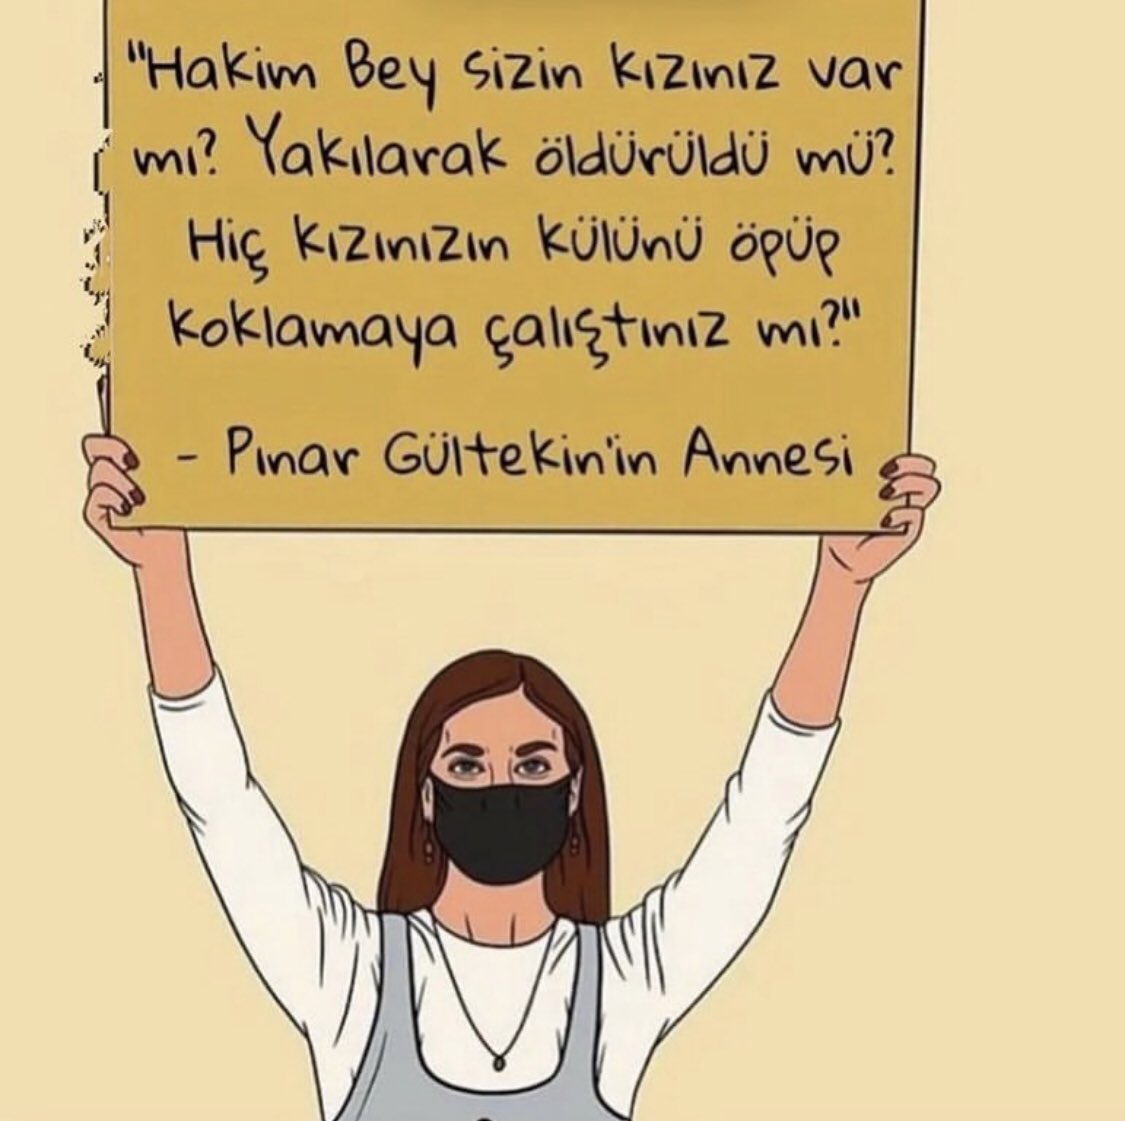 "Hakim Bey sizin kızınız var
mı? Yakılarak öldürüldü mü?
Hiç kızınızın külünü öpüp
koklamaya çalıştınız mı?"
- Pınar Gültekin'in Annesi